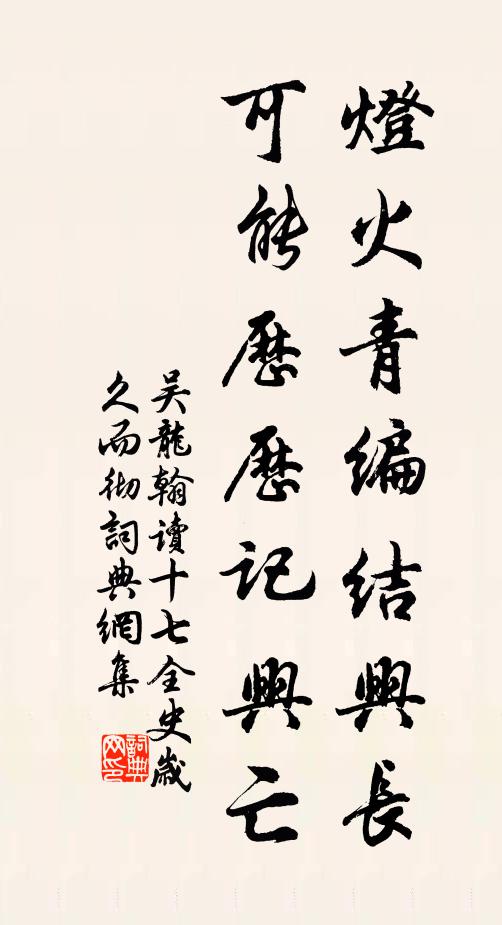 燈火青編結興長
可能歷歷記興亡
吴龍翰讀十七全史歲
久而彻詞典網集
詞典網印